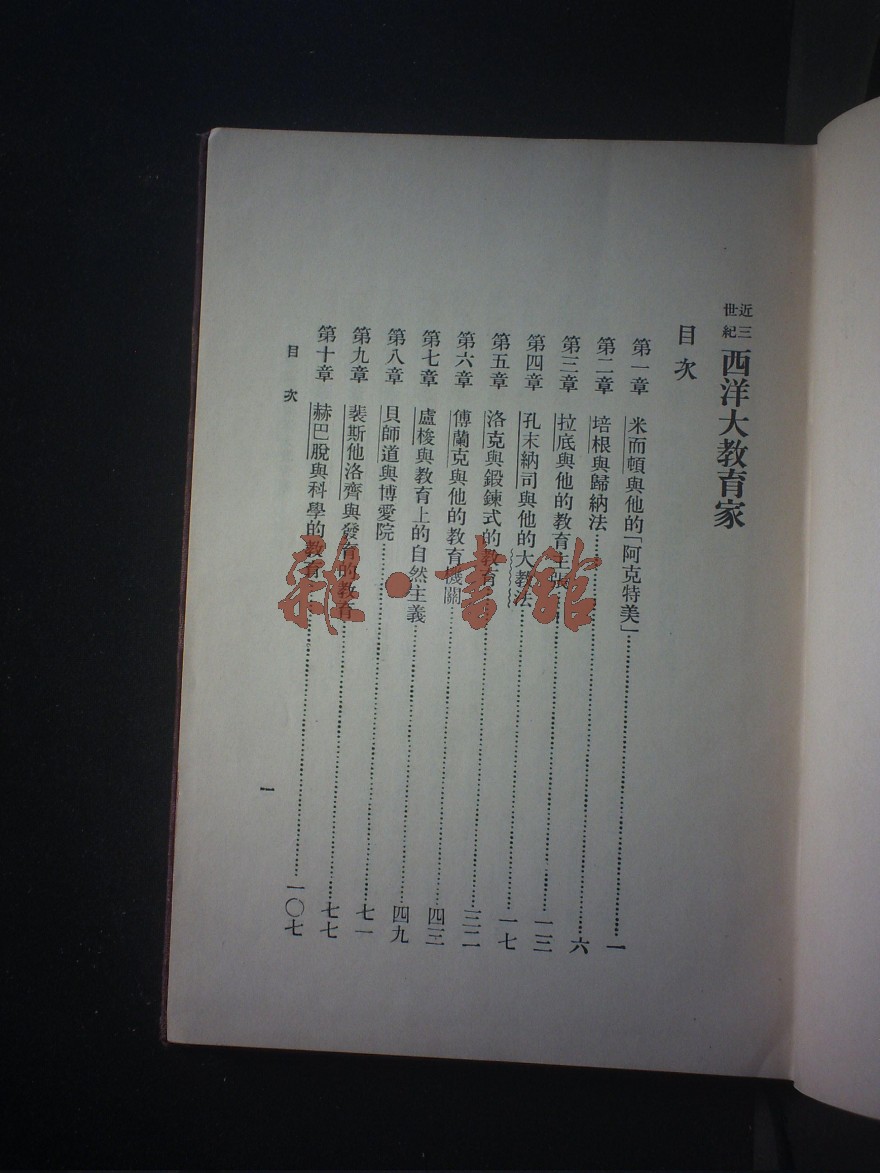 近三世紀西洋大教育家
目次
第一章 米而頓與他的「阿克特美」…………一
第二章 培根與歸納法…………六
第三章 拉底與他的教育主張…………一三
第四章 孔末納司與他的大教法…………一七
第五章 洛克與鍛鍊式的教育…………三二
第六章 傅蘭克與他的教育機關…………四三
第七章 盧梭與教育上的自然主義…………四九
第八章 貝師道與博愛院…………七一
第九章 裴斯他洛齊與發育的教育…………七七
第十章 赫巴脫與科學的教育…………一〇七
目次
一
雜·書館